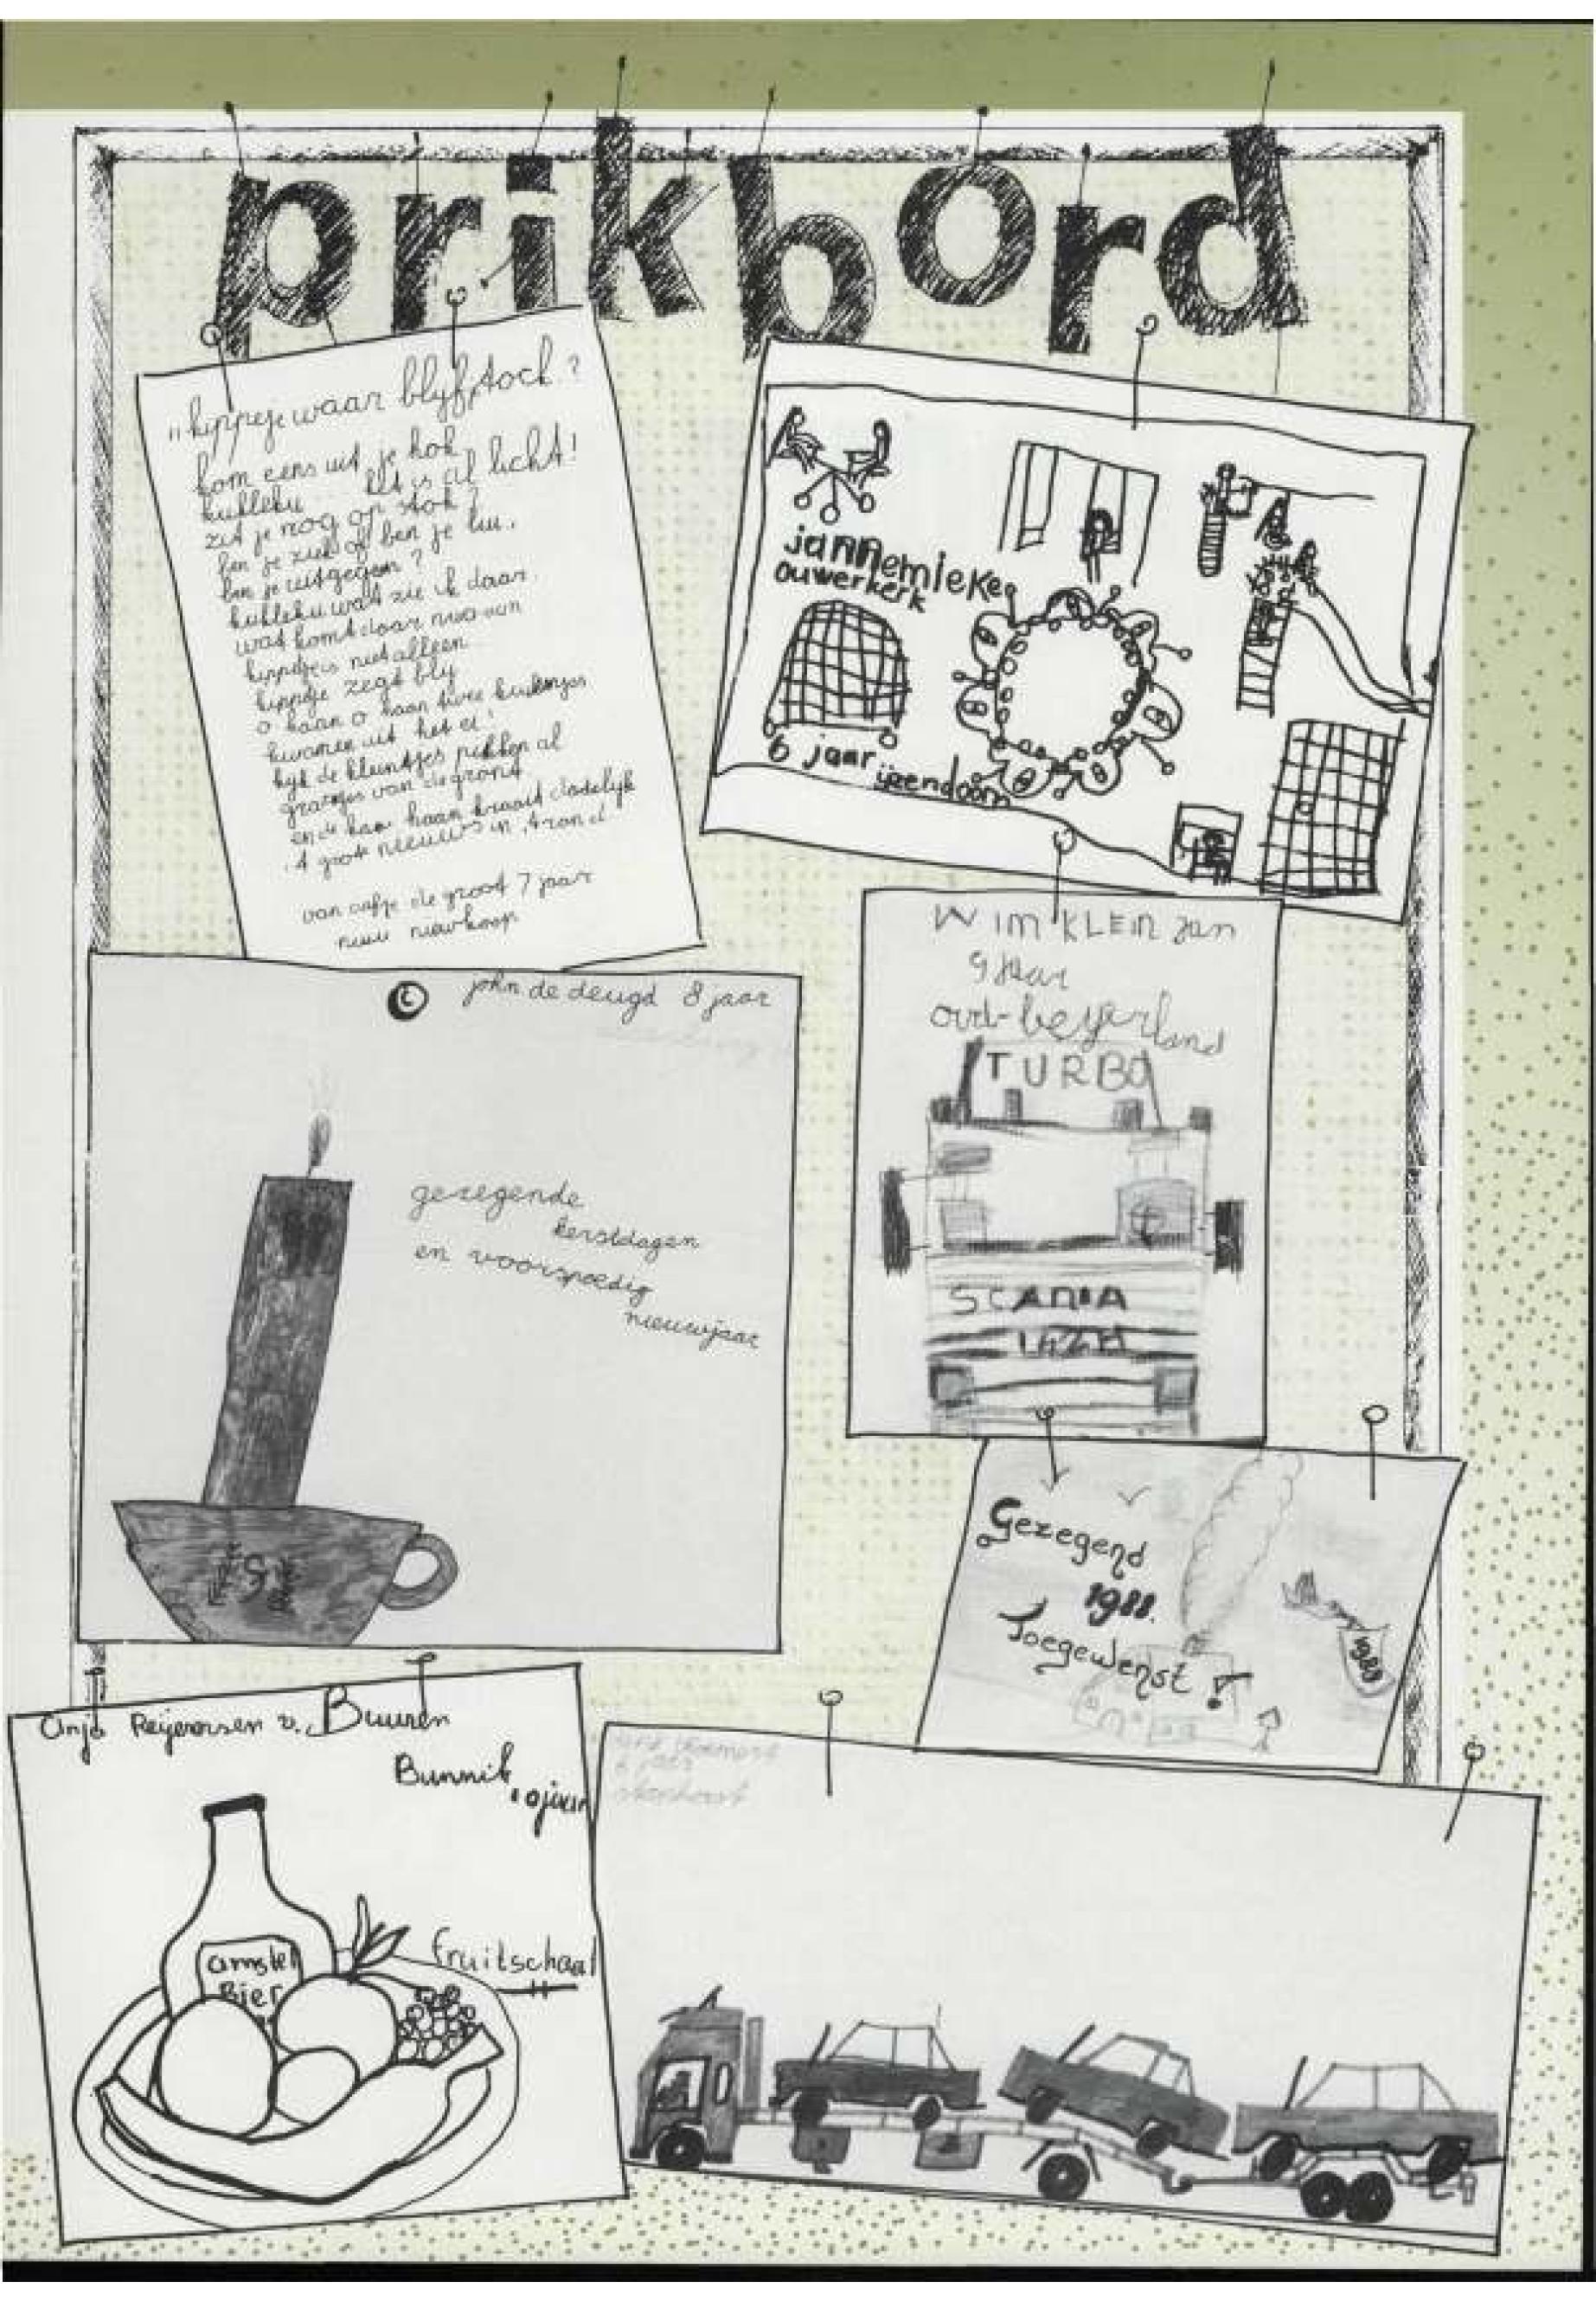 prikbord
„kippetje waar blyf toch?
kom eens uit je hok
kukleku het is al licht!
zit je nog op stok?
ben je ziek of ben je lui.
ben je uitgegen?
kukleku wat zie ik daar.
wat komt daar nu aan
kippetje is niet alleen
kippetje zegt bly
o haan o haan twee kuikentjes
kwamen uit het ei!
kyk de kleintjes pikken al
graantjes van de grond
en de haan kraait dadelyk
't grote nieuws in 't rond
van aafje de groot 7 jaar
nieuwkoop
jannemieke
ouwerkerk
6 jaar
ijzendoorn
WIM KLEIN Jan
9 Jaar
oud-beyerland
TURBO
SCANIA
142M
© john de deugd 8 jaar
gezegende
kerstdagen
en voorspoedig
nieuwjaar
Gezegend
1988.
Toegewenst!
1988
Anja Reijersen v. Buuren
Bunnik
10 jaar
fruitschaal
amstel
Bier
6 jaar